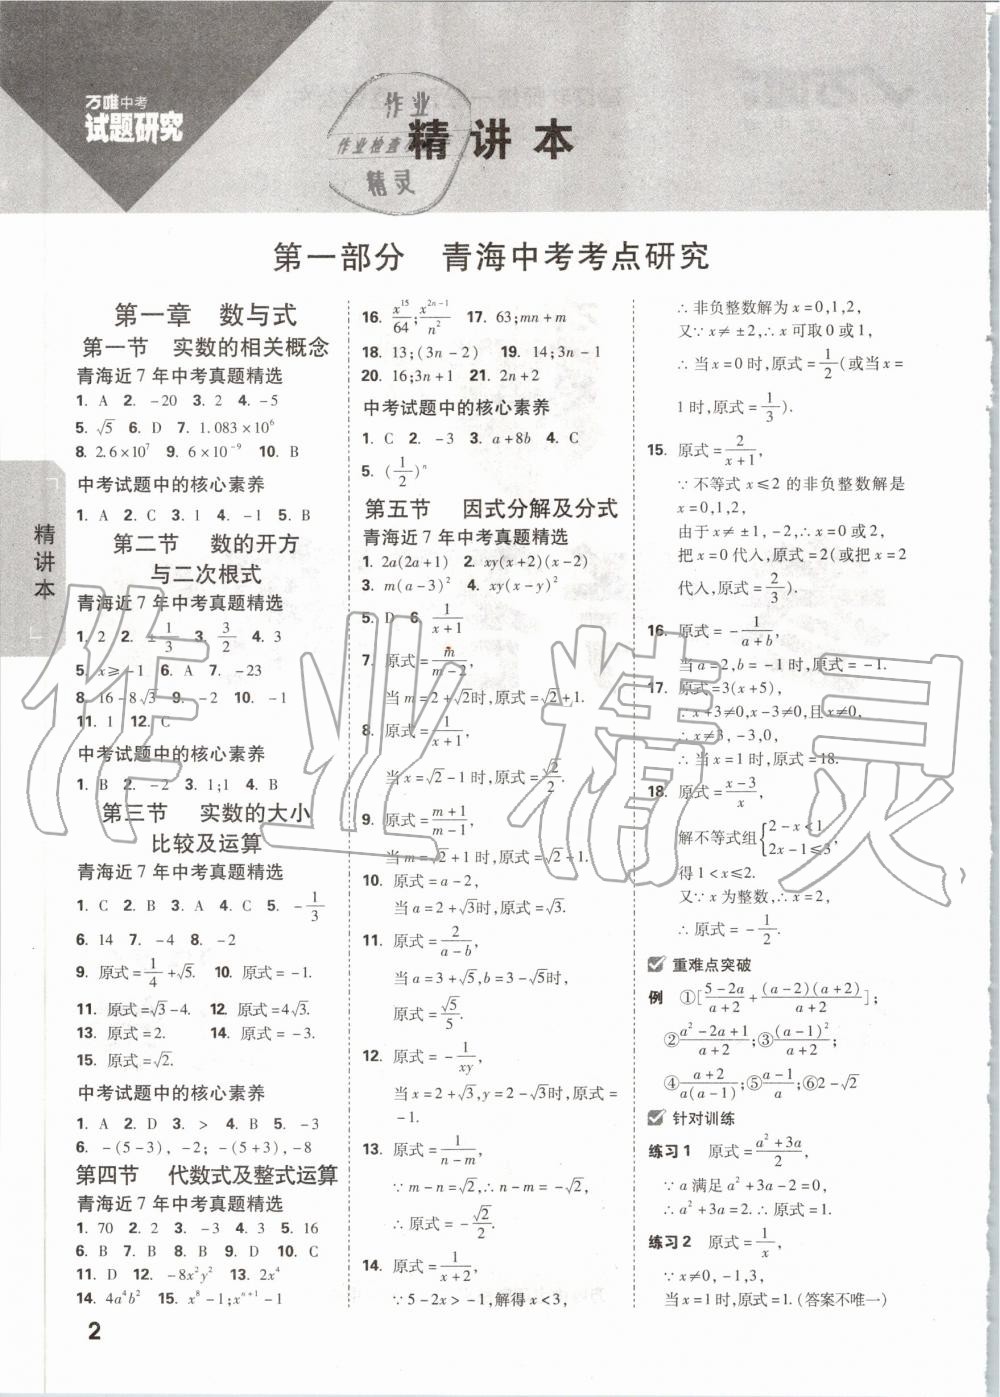 万唯中考
试题研究
作业
作业检查
精灵
精讲本
第一部分 青海中考考点研究
精讲本
第一章 数与式
第一节 实数的相关概念
青海近7年中考真题精选
1. A 2. -20 3. 2 4. -5
5. √5 6. D 7. 1.083×10⁶
8. 2.6×10⁷ 9. 6×10⁻⁹ 10. B
中考试题中的核心素养
1. A 2. C 3. 1 4. -1 5. B
第二节 数的开方
与二次根式
青海近7年中考真题精选
1. 2 2. ±1/3 3. 3/2 4. 3
5. x≥-1 6. A 7. -23
8. 16-8√3 9. -2 10. -1
11. 1 12. C
中考试题中的核心素养
1. B 2. -2 3. 1;1 4. B
第三节 实数的大小
比较及运算
青海近7年中考真题精选
1. C 2. B 3. A 4. C 5. -1/3
6. 14 7. -4 8. -2
9. 原式=1/4+√5. 10. 原式=-1.
11. 原式=√3-4. 12. 原式=4√3.
13. 原式=2. 14. 原式=-3.
15. 原式=√2.
中考试题中的核心素养
1. A 2. D 3. > 4. B 5. -3
6. -(5-3), -2; -(5+3), -8
第四节 代数式及整式运算
青海近7年中考真题精选
1. 70 2. 2 3. -3 4. 3 5. 16
6. B 7. B 8. D 9. D 10. C
11. D 12. -8x²y² 13. 2x⁴
14. 4a⁴b² 15. x⁸-1;xⁿ⁺¹-1
16. x¹⁵/64;x²ⁿ⁻¹/n² 17. 63;mn+m
18. 13;(3n-2) 19. 14;3n-1
20. 16;3n+1 21. 2n+2
中考试题中的核心素养
1. C 2. -3 3. a+8b 4. C
5. (1/2)ⁿ
第五节 因式分解及分式
青海近7年中考真题精选
1. 2a(2a+1) 2. xy(x+2)(x-2)
3. m(a-3)² 4. xy(x-y)²
5. D 6. 1/(x+1)
7. 原式=m/(m-2),
当m=2+√2时,原式=√2+1.
8. 原式=1/(x+1),
当x=√2-1时,原式=√2/2.
9. 原式=(m+1)/(m-1),
当m=√2+1时,原式=√2+1.
10. 原式=a-2,
当a=2+√3时,原式=√3.
11. 原式=2/(a-b),
当a=3+√5,b=3-√5时,
原式=√5/5.
12. 原式=-1/xy,
当x=2+√3,y=2-√3时,原式=
-1.
13. 原式=1/(n-m),
∵m-n=√2,∴n-m=-√2,
∴原式=-√2/2.
14. 原式=1/(x+2),
∵5-2x>-1,解得x<3,
∴非负整数解为x=0,1,2,
又∵x≠±2,∴x可取0或1,
∴当x=0时,原式=1/2(或当x=
1时,原式=1/3).
15. 原式=2/(x+1),
∵不等式x≤2的非负整数解是
x=0,1,2,
由于x≠±1,-2,∴x=0或2,
把x=0代入,原式=2(或把x=2
代入,原式=2/3).
16. 原式=-1/(a+b),
当a=2,b=-1时,原式=-1.
17. 原式=3(x+5),
∵x+3≠0,x-3≠0,且x≠0,
∴x≠3,-3,0,
∴当x=1时,原式=18.
18. 原式=(x-3)/x,
解不等式组{2-x<1,2x-1≤3,
得1<x≤2.
又∵x为整数,∴x=2,
∴原式=-1/2.
重难点突破
例 ①[(5-2a)/(a+2)+(a-2)(a+2)/(a+2)];
②(a²-2a+1)/(a+2);③(a-1)²/(a+2);
④(a+2)/a(a-1);⑤(a-1)/a;⑥2-√2
针对训练
练习1 原式=(a²+3a)/2,
∵a满足a²+3a-2=0,
∴a²+3a=2.∴原式=1.
练习2 原式=1/x,
∵x≠0,-1,3,
当x=1时,原式=1.(答案不唯一)
2
作业精灵